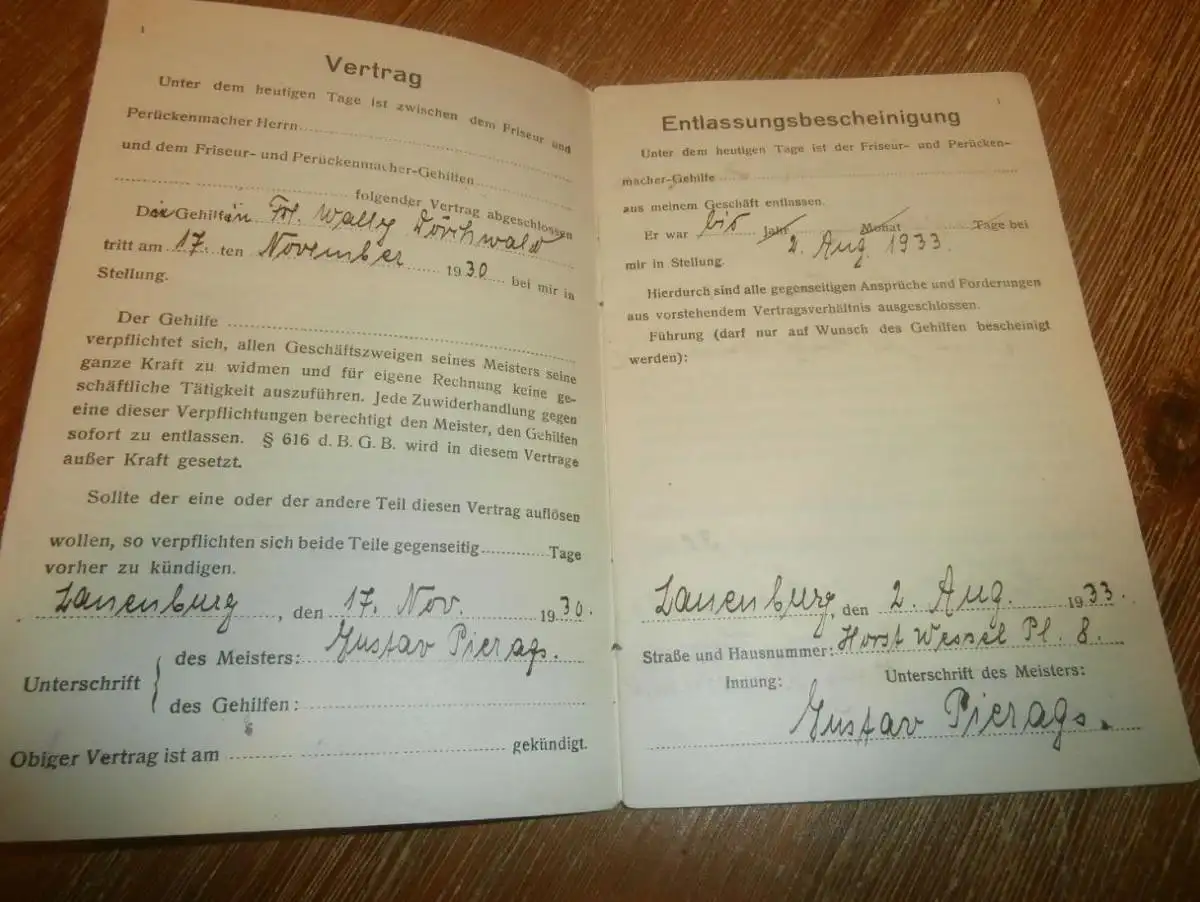 1
Vertrag
Unter dem heutigen Tage ist zwischen dem Friseur und
Perückenmacher Herrn
und dem Friseur- und Perückenmacher-Gehilfen
folgender Vertrag abgeschlossen
Die Gehilfin Frl. Wally Dörchwald
tritt am 17 ten November 1930 bei mir in
Stellung.
Der Gehilfe
verpflichtet sich, allen Geschäftszweigen seines Meisters seine
ganze Kraft zu widmen und für eigene Rechnung keine ge-
schäftliche Tätigkeit auszuführen. Jede Zuwiderhandlung gegen
eine dieser Verpflichtungen berechtigt den Meister, den Gehilfen
sofort zu entlassen. § 616 d. B. G. B. wird in diesem Vertrage
außer Kraft gesetzt.
Sollte der eine oder der andere Teil diesen Vertrag auflösen
wollen, so verpflichten sich beide Teile gegenseitig Tage
vorher zu kündigen.
Lauenburg, den 17. Nov. 1930.
Unterschrift
des Meisters: Gustav Pierags.
des Gehilfen:
Obiger Vertrag ist am gekündigt.
1
Entlassungsbescheinigung
Unter dem heutigen Tage ist der Friseur- und Perücken-
macher-Gehilfe
aus meinem Geschäft entlassen.
Er war bis Jahr Monat Tage bei
2. Aug. 1933.
mir in Stellung.
Hierdurch sind alle gegenseitigen Ansprüche und Forderungen
aus vorstehendem Vertragsverhältnis ausgeschlossen.
Führung (darf nur auf Wunsch des Gehilfen bescheinigt
werden):
Lauenburg, den 2. Aug. 1933.
Straße und Hausnummer: Horst Wessel Pl. 8.
Innung: Unterschrift des Meisters:
Gustav Pierags.